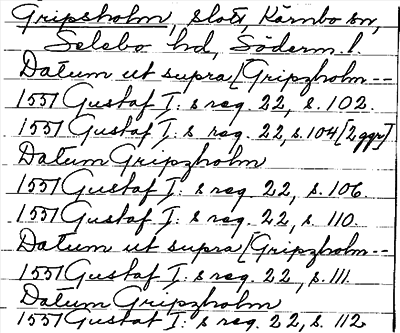 Gripsholm, slott Kärnbo sn,
Selebo hd, Söderm. l.
Datum ut supra [Gripzholm --
1551 Gustaf I: s reg. 22, s. 102.
1551 Gustaf I: s reg. 22, s. 104 [2 ggr]
Datum Gripzholm
1551 Gustaf I: s reg. 22, s. 106
1551 Gustaf I: s reg. 22, s. 110.
Datum ut supra [Gripzholm --
1551 Gustaf I: s reg. 22, s. 111.
Datum Gripzholm
1551 Gustaf I: s reg. 22, s. 112